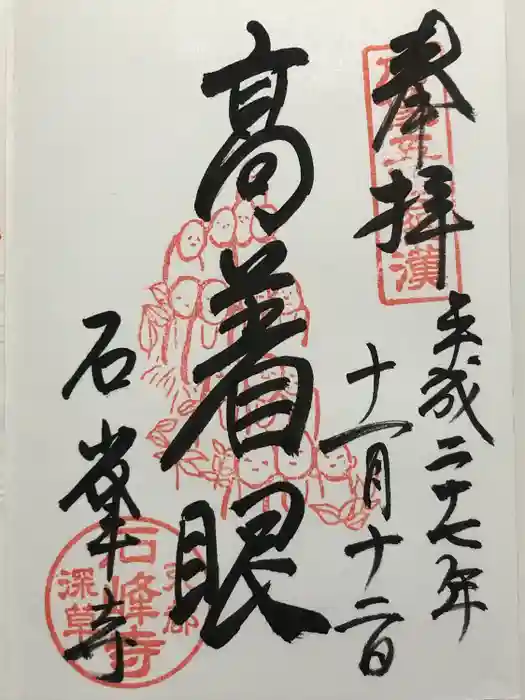 奉拝
平成二十七年
十一月十二日
高着眼
石峯寺
石峰寺
深草